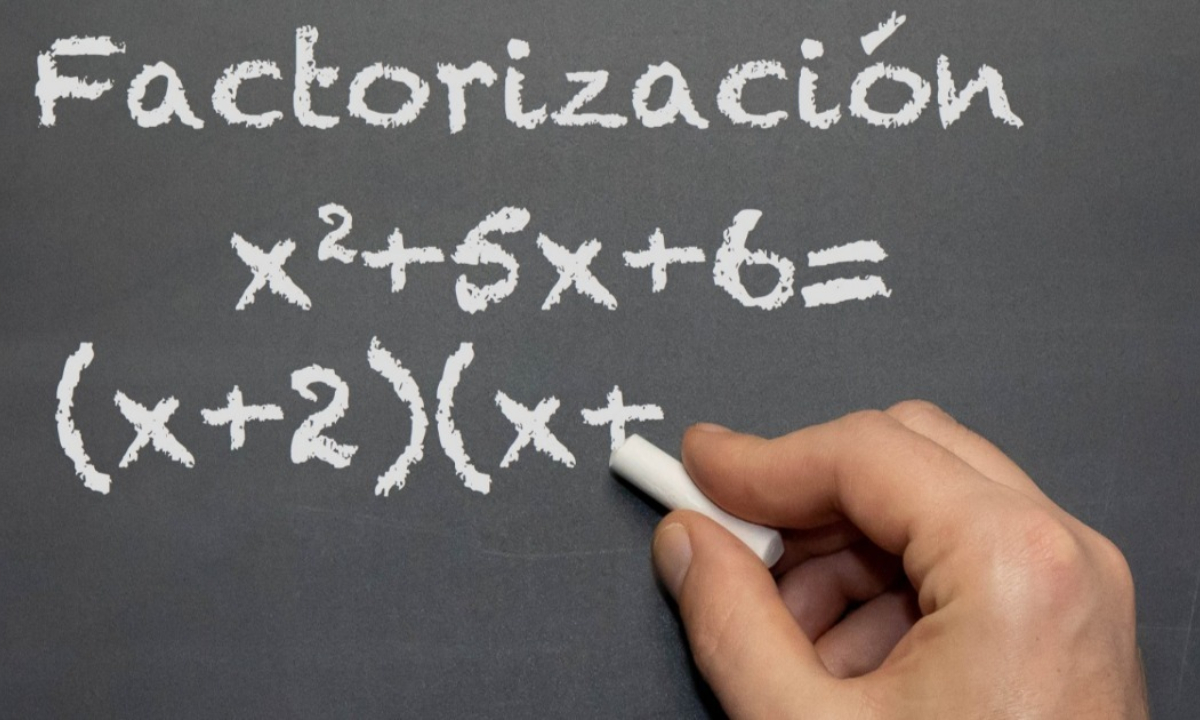 Factorización
x²+5x+6=
(x+2)(x+